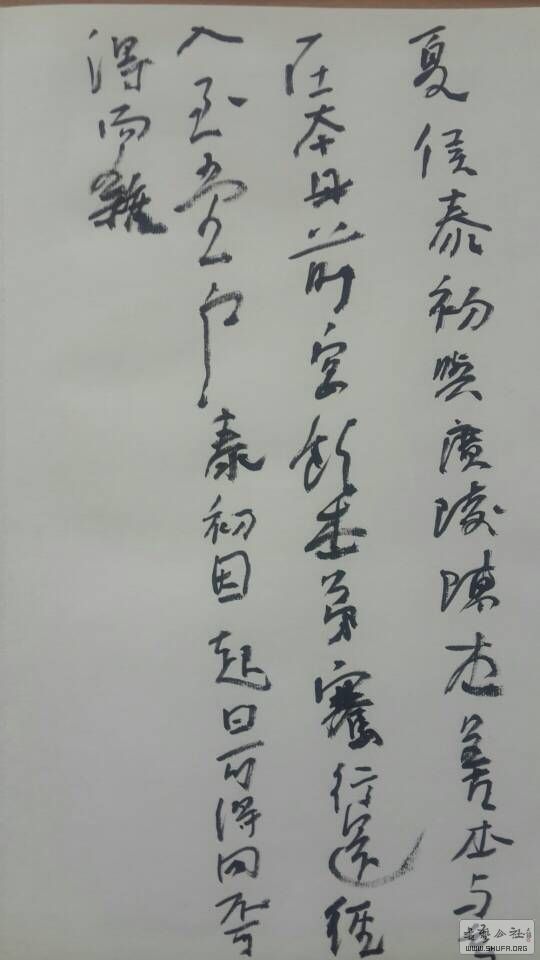 夏侯泰初與廣陵陳本善本与玄
在本母前宴飲本弟騫行還徑
入至堂户泰初因起曰可得同不可
得而雜
书艺公社
WWW.SHUFA.ORG